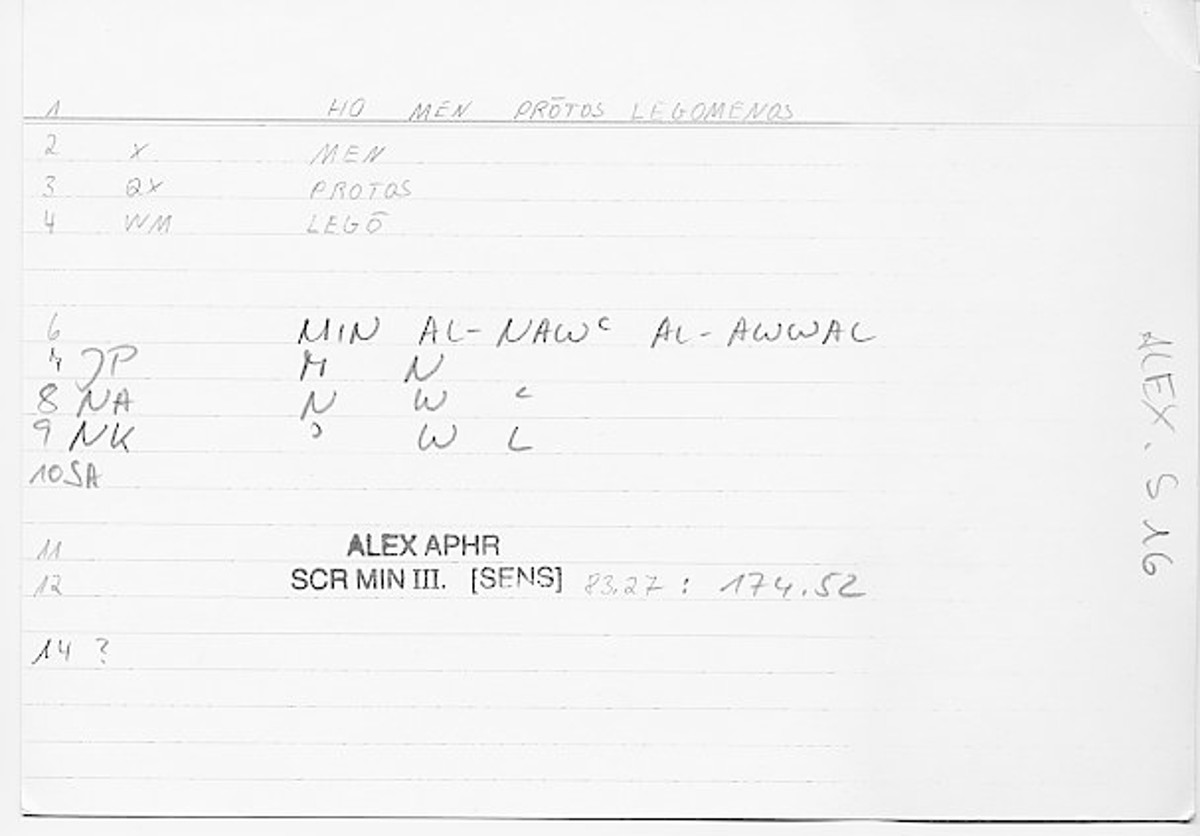 1 HO MEN PRŌTOS LEGOMENOS
2 X MEN
3 QX PROTOS
4 WM LEGŌ
6 MIN AL-NAWᶜ AL-AWWAL
4 JP M N
8 NA N W ᶜ
9 NK ʾ W L
10 SA
11 ALEX APHR
12 SCR MIN III. [SENS] 83,27 : 174.52
14 ?
ALEX. S 16